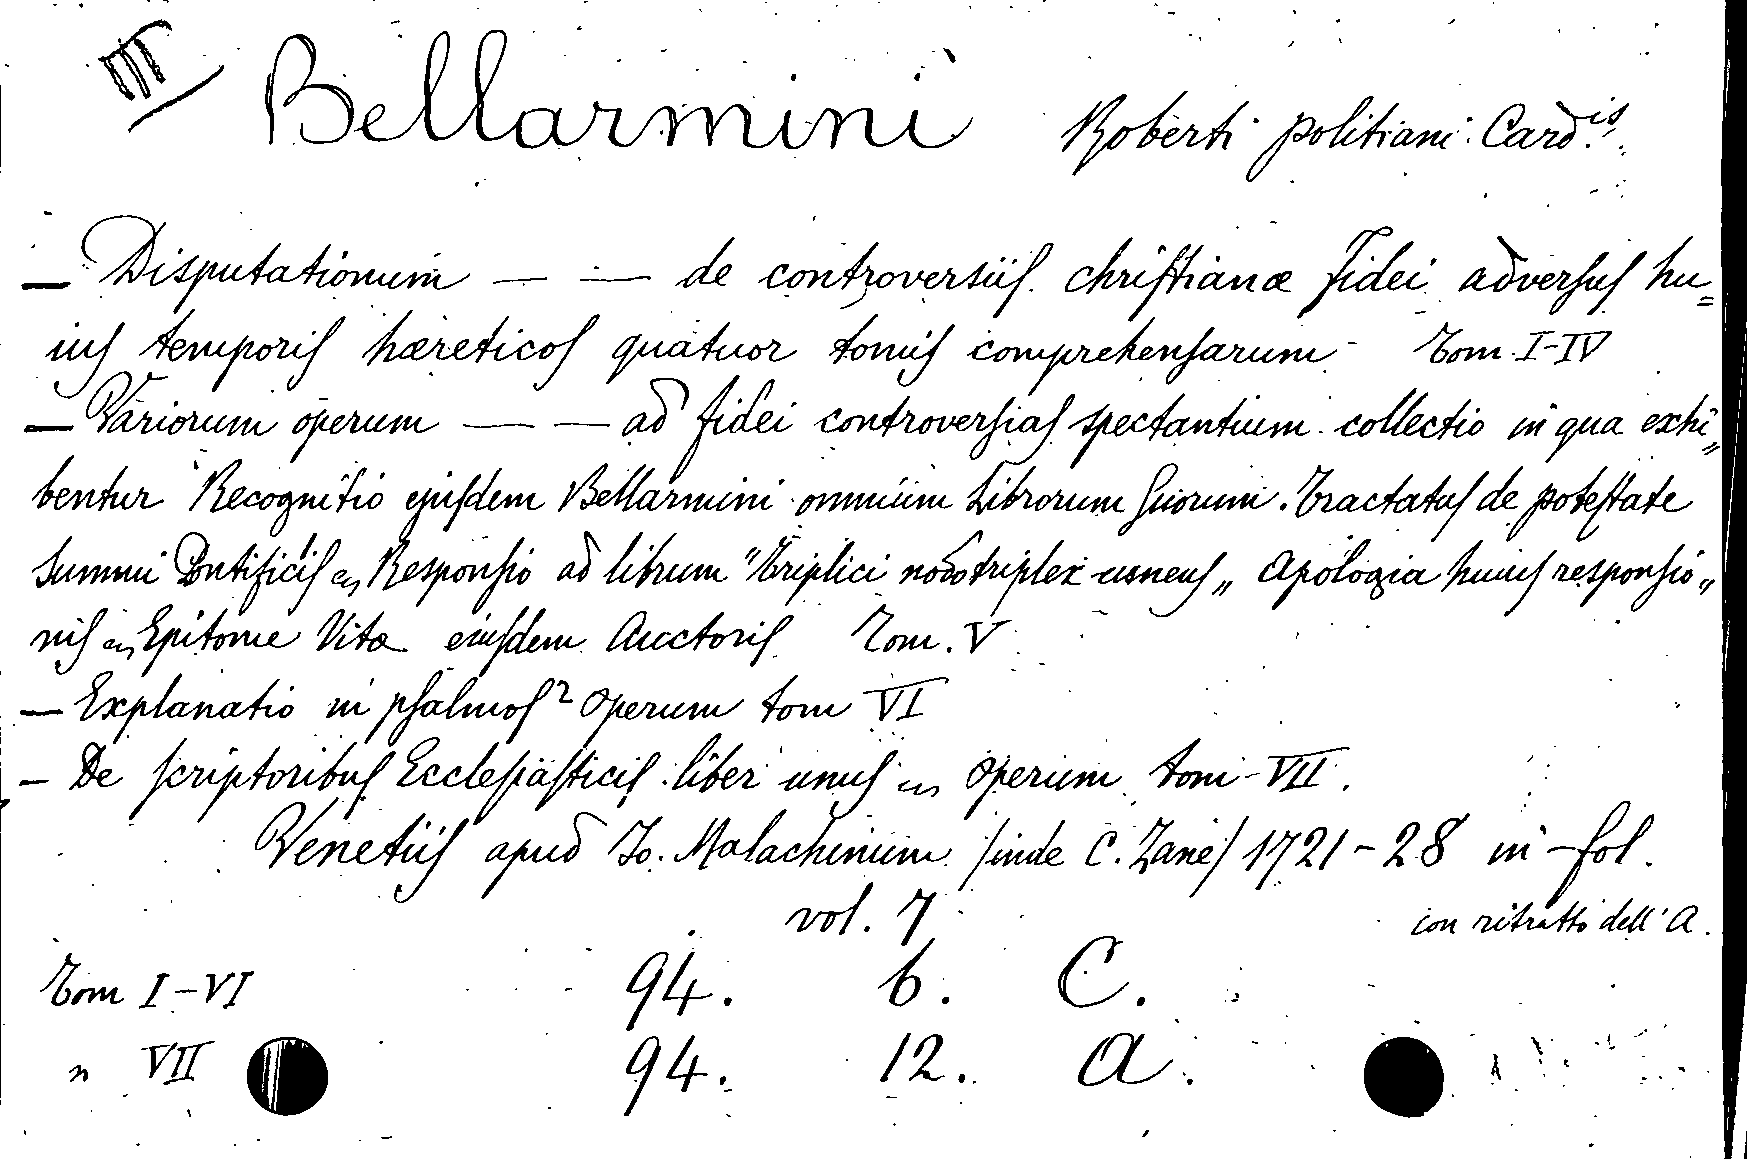 III/ Bellarmini Roberti politiani Card.is
— Disputationum — — de controversiis christianæ fidei adversus hu=
ius temporis hæreticos quatuor tomis comprehensarum Tom I-IV
— Variorum operum — — ad fidei controversias spectantium collectio in qua exhi„
bentur Recognitio ejusdem Bellarmini omnium Librorum suorum. Tractatus de potestate
Summi Pontificis Responsio ad librum "Triplici nodo triplex cuneus„ Apologia huius responsio„
nis Epitome Vitæ eiusdem Auctoris Tom. V
— Explanatio in psalmos operum tom VI
— De scriptoribus Ecclesiasticis liber unus operum tom VII.
Venetiis apud Jo. Malachinum /inde C. Zane/ 1721-28 in-fol.
vol. 7 con ritratto dell'A.
Tom I-VI 94. 6. C.
" VII 94. 12. A.